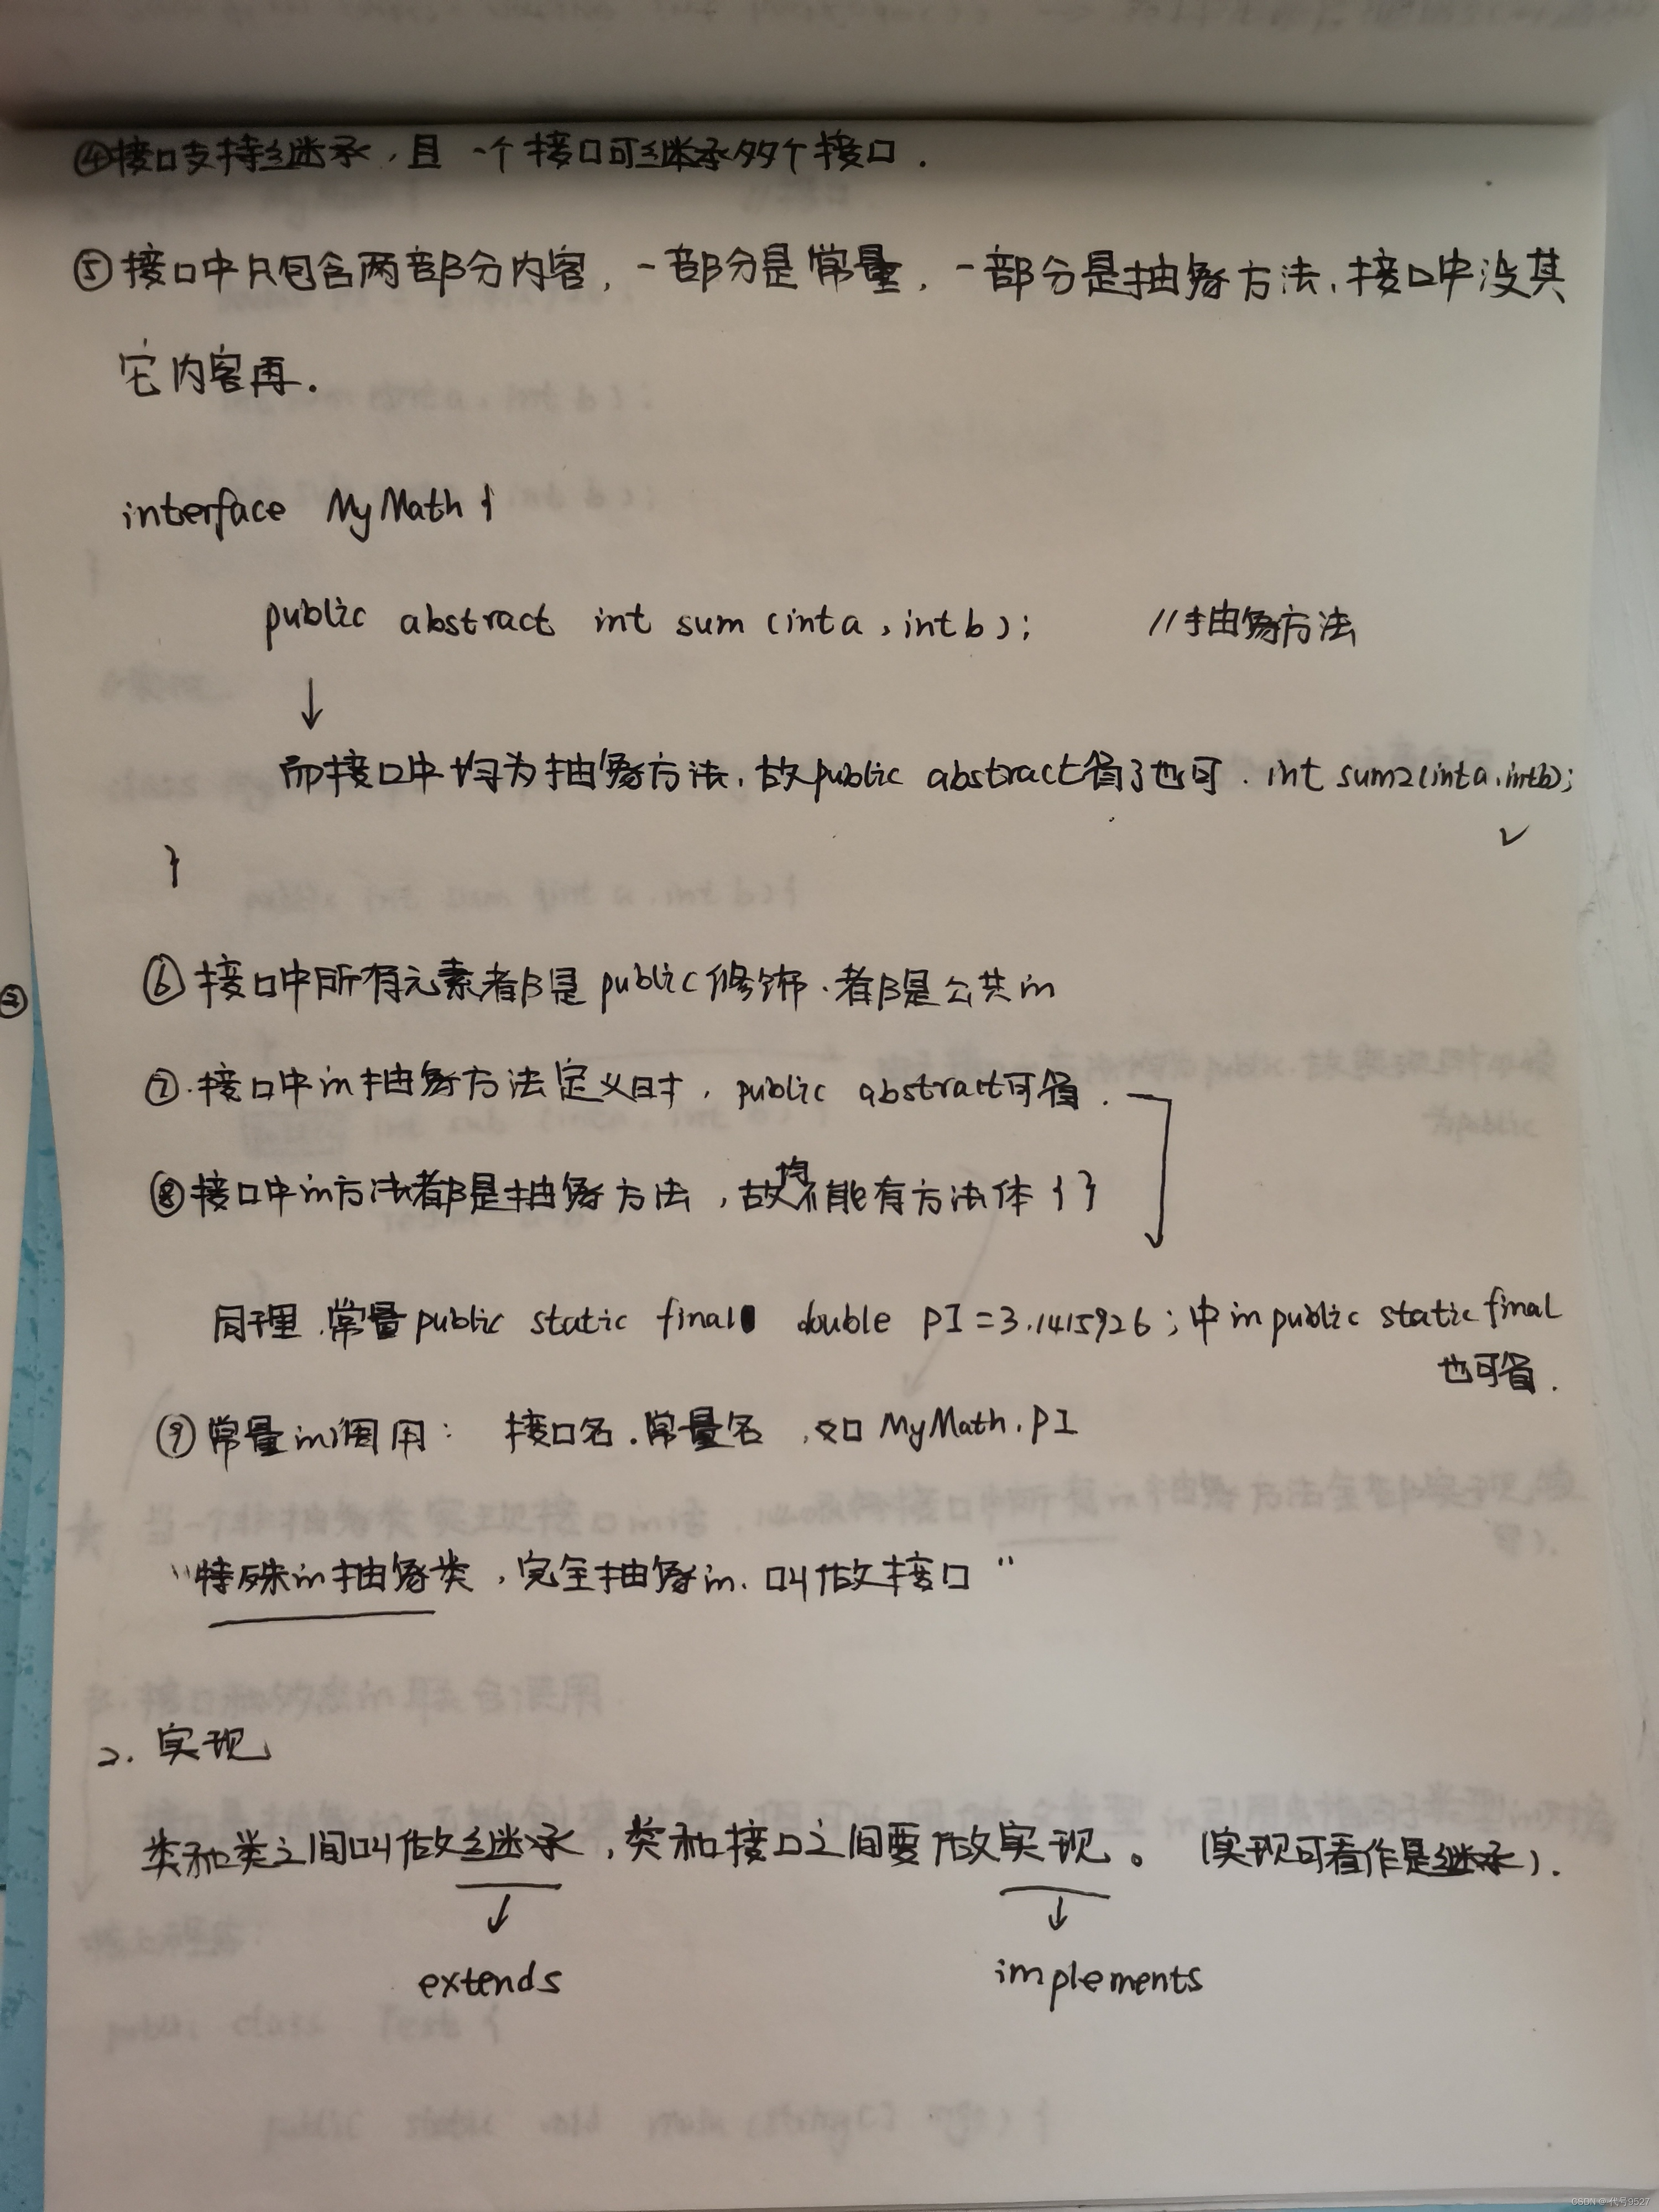 ④接口支持继承,且一个接口可继承多个接口.
⑤接口中只包含两部分内容,一部分是常量,一部分是抽象方法,接口中没其
它内容再.
interface MyMath {
public abstract int sum (int a, int b); //抽象方法
↓
而接口中均为抽象方法,故public abstract省了也可. int sum2(int a, int b);
✓
}
⑥接口中所有元素都是public修饰.都是公共in
⑦.接口中in抽象方法定义时,public abstract可省.
⑧接口中in方法都是抽象方法,故均不能有方法体{ }
同理.常量public static final double PI=3.1415926;中in public static final
也可省.
⑨常量in调用: 接口名.常量名,如MyMath.PI
"特殊in抽象类,完全抽象in.叫做接口"
2.实现
类和类之间叫做继承,类和接口之间要做实现。(实现可看作是继承).
↓ ↓
extends implements
CSDN @代号9527